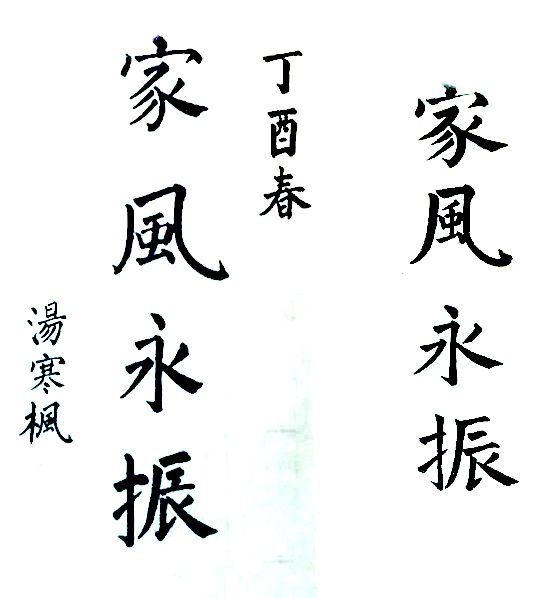 家風永振
丁酉春
家風永振
湯寒楓